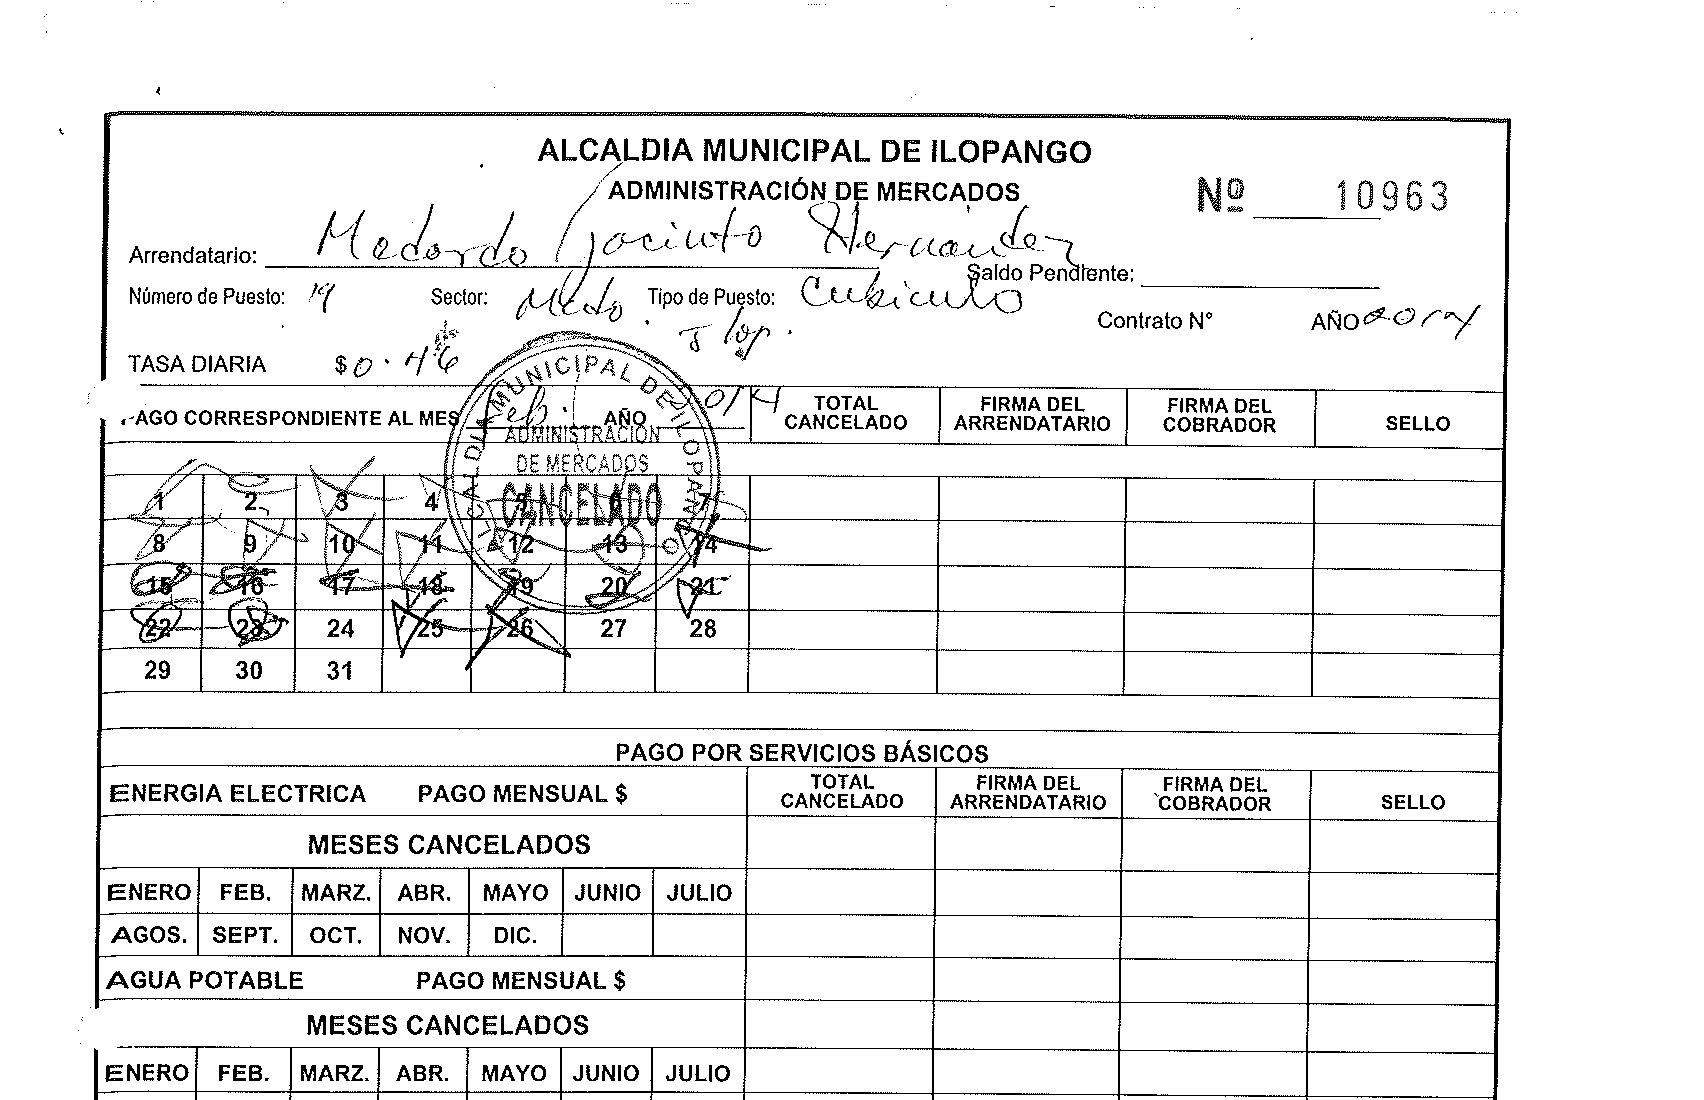 ALCALDIA MUNICIPAL DE ILOPANGO
ADMINISTRACIÓN DE MERCADOS
Nº 10963
Arrendatario: Medardo Jacinto Hernández
Saldo Pendiente:
Número de Puesto: 19 Sector: Mcdo. Ilop. Tipo de Puesto: Cubiculo
Contrato N° AÑO 2014
TASA DIARIA $0.46
PAGO CORRESPONDIENTE AL MES Feb. AÑO 2014 TOTAL CANCELADO FIRMA DEL ARRENDATARIO FIRMA DEL COBRADOR SELLO
ALCALDIA MUNICIPAL DE ILOPANGO
ADMINISTRACION
DE MERCADOS
CANCELADO
1 2 3 4 5 6 7
8 9 10 11 12 13 14
15 16 17 18 19 20 21
22 23 24 25 26 27 28
29 30 31
PAGO POR SERVICIOS BÁSICOS
ENERGIA ELECTRICA PAGO MENSUAL $ TOTAL CANCELADO FIRMA DEL ARRENDATARIO FIRMA DEL COBRADOR SELLO
MESES CANCELADOS
ENERO FEB. MARZ. ABR. MAYO JUNIO JULIO
AGOS. SEPT. OCT. NOV. DIC.
AGUA POTABLE PAGO MENSUAL $
MESES CANCELADOS
ENERO FEB. MARZ. ABR. MAYO JUNIO JULIO